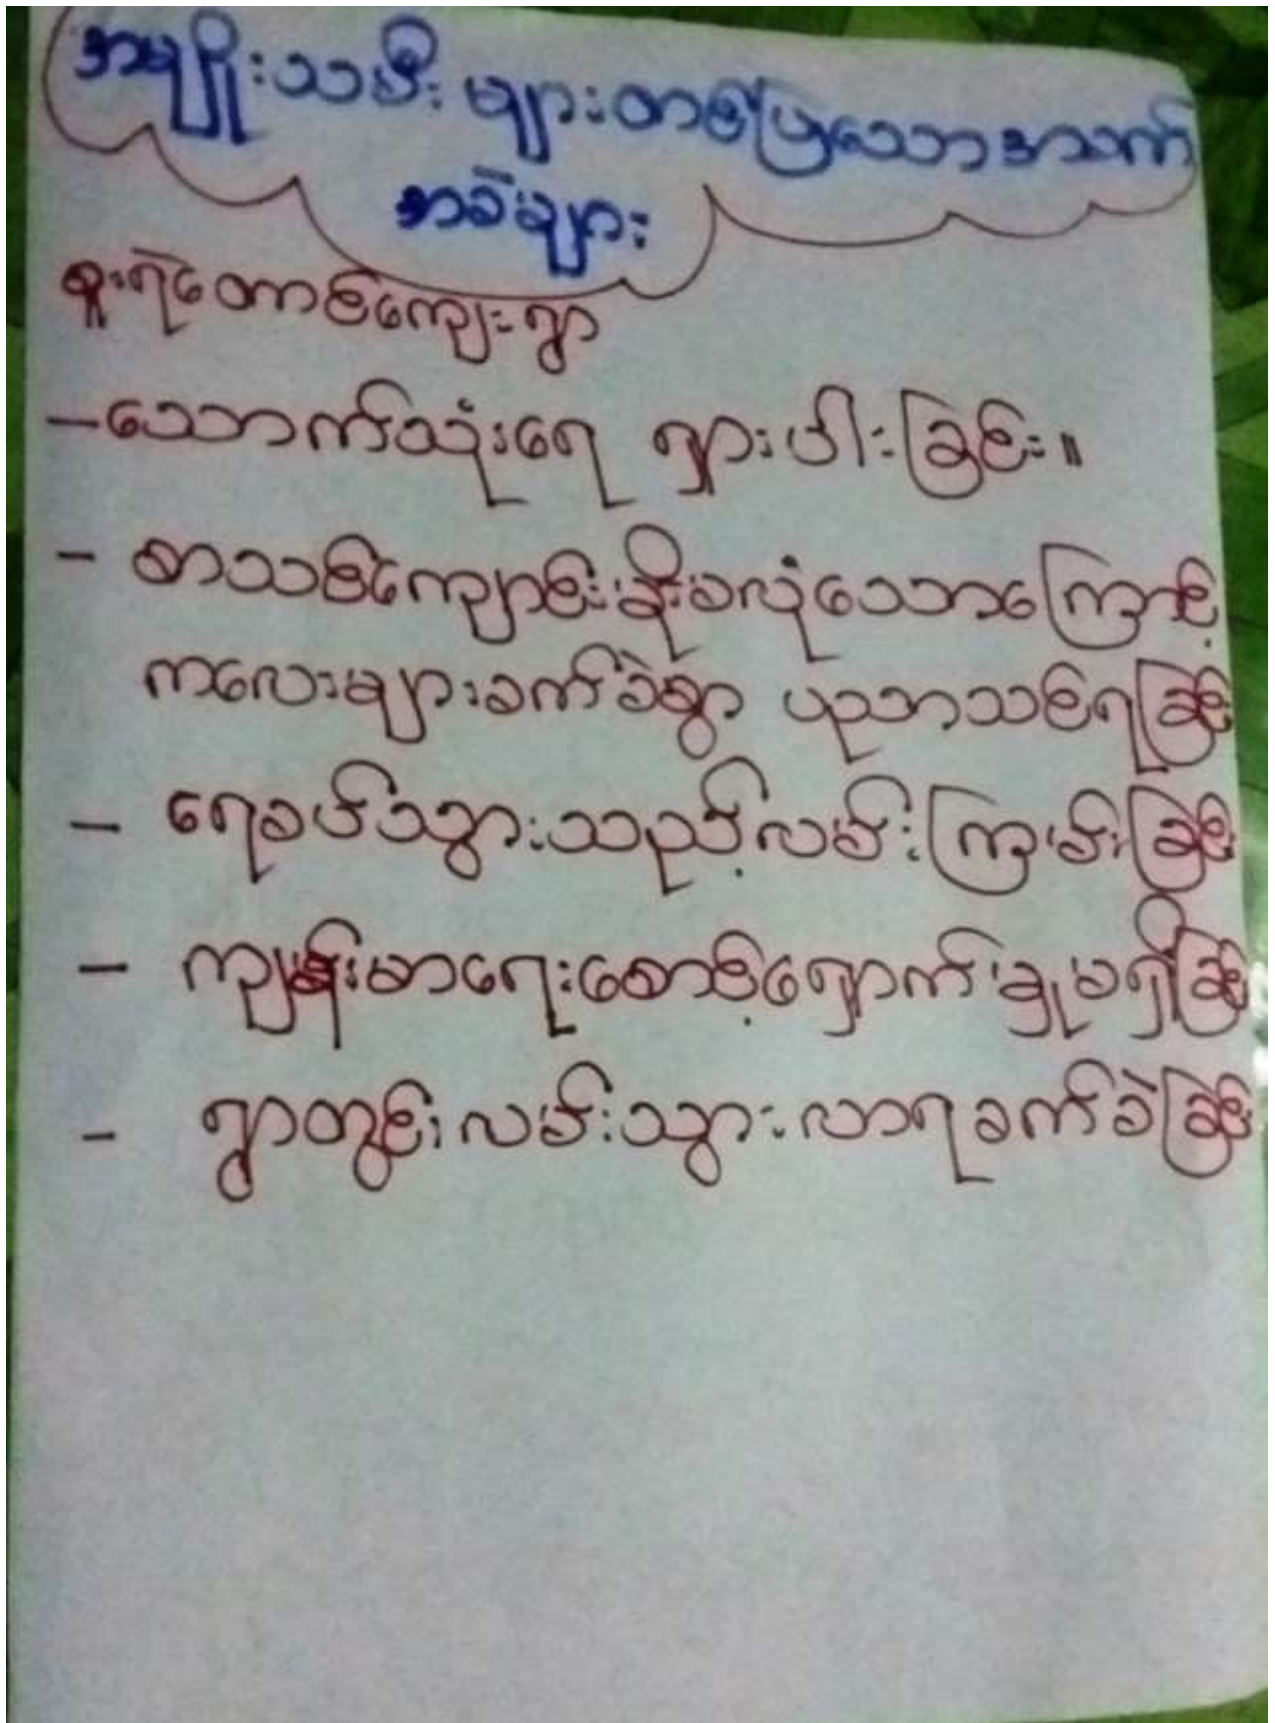 အမျိုးသမီးများတင်ပြသောအခက်
အခဲများ
စူးရဲတောင်ကျေးရွာ
- သောက်သုံးရေ ရှားပါးခြင်း။
- စာသင်ကျောင်းမိုးမလုံသောကြောင့်
ကလေးများခက်ခဲစွာ ပညာသင်ရခြင်း
- ရေခပ်သွားသည့်လမ်းကြမ်းခြင်း
- ကျန်းမာရေးစောင့်ရှောက်မှုမရှိခြင်း
- ရွာတွင်းလမ်းသွားလာရခက်ခဲခြင်း